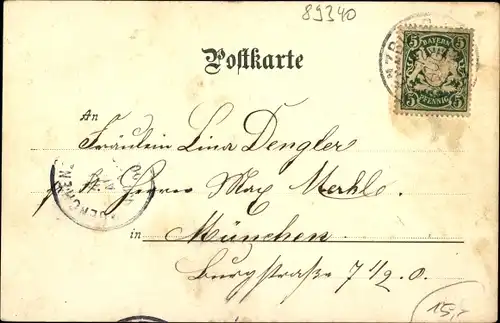 89340
Postkarte
BAYERN
5 5
5 PFENNIG 5
An
Fräulein Lina Dengler
Herrn Max Merkle.
MÜNCHEN
in München
Burgstraße 7 1/2. 0.
15,-